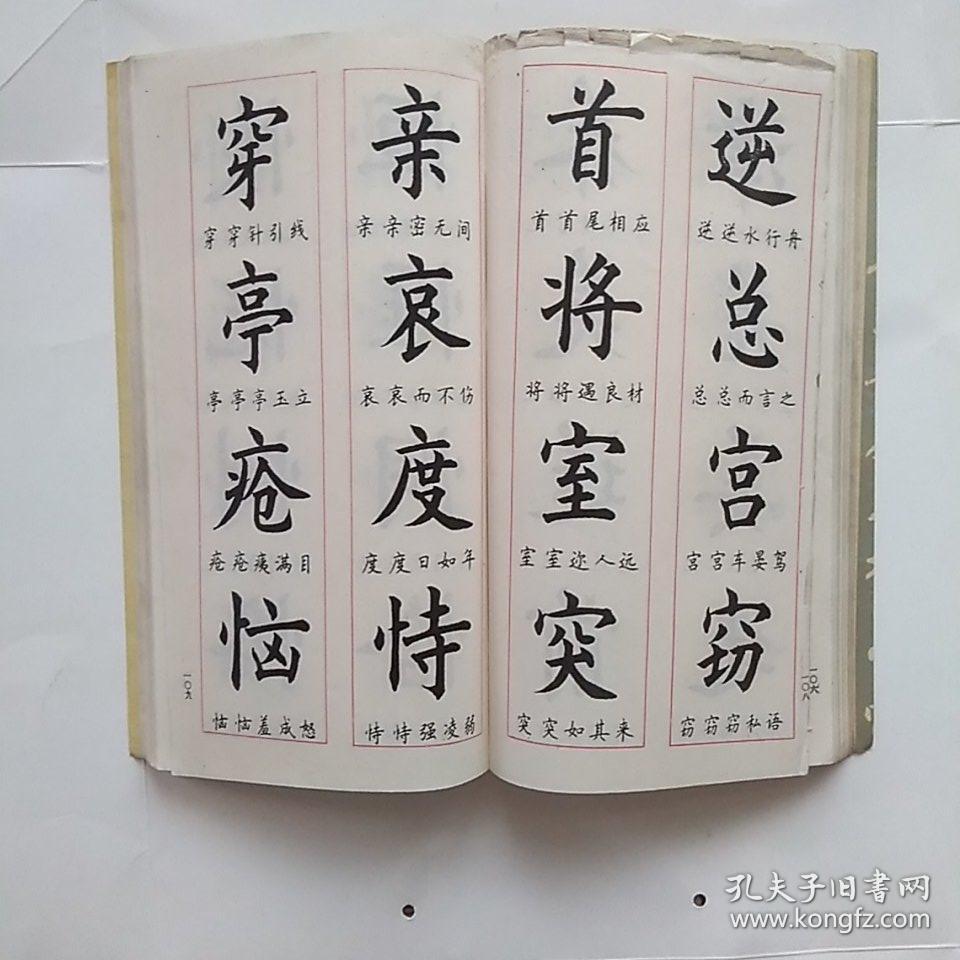 逆
逆 逆水行舟
总
总 总而言之
宫
宫 宫车晏驾
窃
窃 窃窃私语
首
首 首尾相应
将
将 将遇良材
室
室 室迩人远
突
突 突如其来
一〇六
一〇八
亲
亲 亲密无间
哀
哀 哀而不伤
度
度 度日如年
恃
恃 恃强凌弱
穿
穿 穿针引线
亭
亭 亭亭玉立
疮
疮 疮痍满目
恼
恼 恼羞成怒
一〇九
孔夫子旧书网
www.kongfz.com